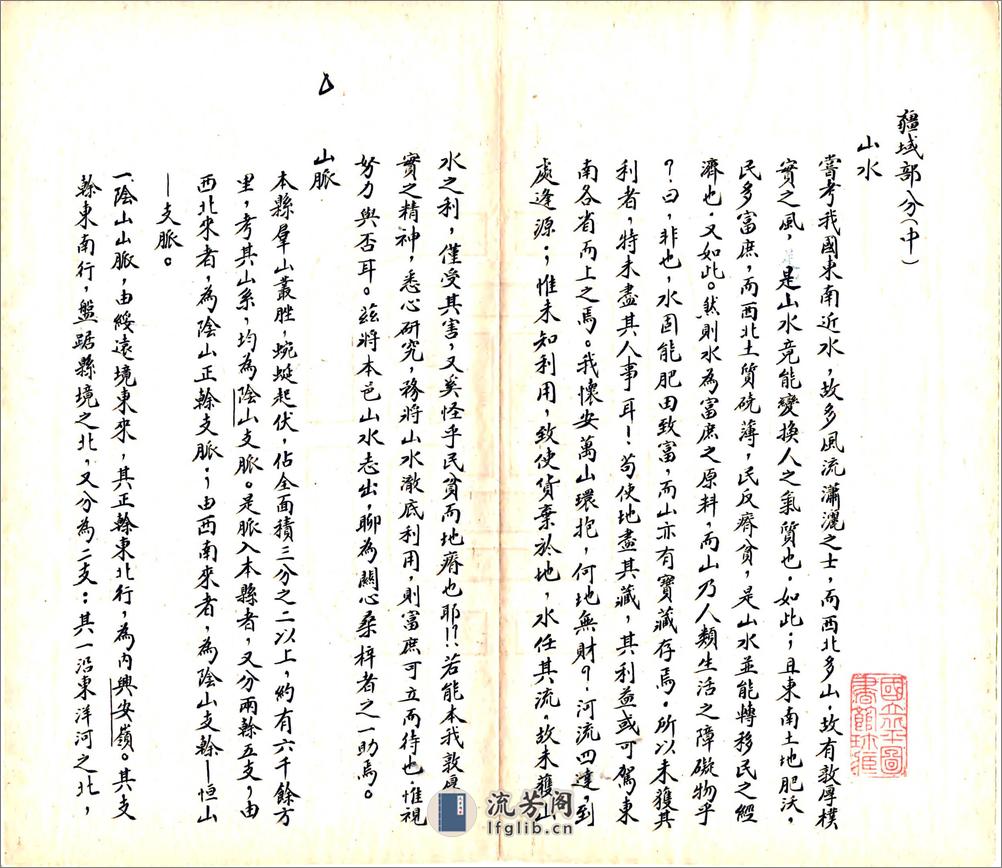 疆域部分（中）
山水
嘗考我國東南近水，故多風流瀟灑之士，而西北多山，故有敦厚樸
實之風，是山水竟能變換人之氣質也。如此；且東南土地肥沃，
民多富庶，而西北土質磽薄，民反瘠貧，是山水並能轉移民之經
濟也。又如此。然則水為富庶之原料，而山乃人類生活之障礙物乎
？曰，非也，水固能肥田致富，而山亦有寶藏存焉。所以未獲其
利者，特未盡其人事耳！苟使地盡其藏，其利益或可駕東
南各省而上之焉。我懷安萬山環抱，何地無財？河流四達，到
處逢源；惟未知利用，致使貨棄於地，水任其流，故未獲山
水之利，僅受其害，又奚怪乎民貧而地瘠也耶！？若能本我敦厚
實之精神，悉心研究，務將山水澈底利用，則富庶可立而待也惟視
努力與否耳。茲將本邑山水志出，聊為關心桑梓者之一助焉。
山脈
本縣羣山叢胜，蜿蜒起伏，佔全面積三分之二以上，約有六千餘方
里，考其山系，均為陰山支脈。是脈入本縣者，又分兩榦五支，由
西北來者，為陰山正榦支脈；由西南來者，為陰山支榦—恒山
—支脈。
一陰山山脈，由綏遠境東來，其正榦東北行，為內興安嶺。其支
榦東南行，盤踞縣境之北，又分為二支：其一沿東洋河之北，
國立北平圖
書館珍藏
流芳阁
lfglib.cn